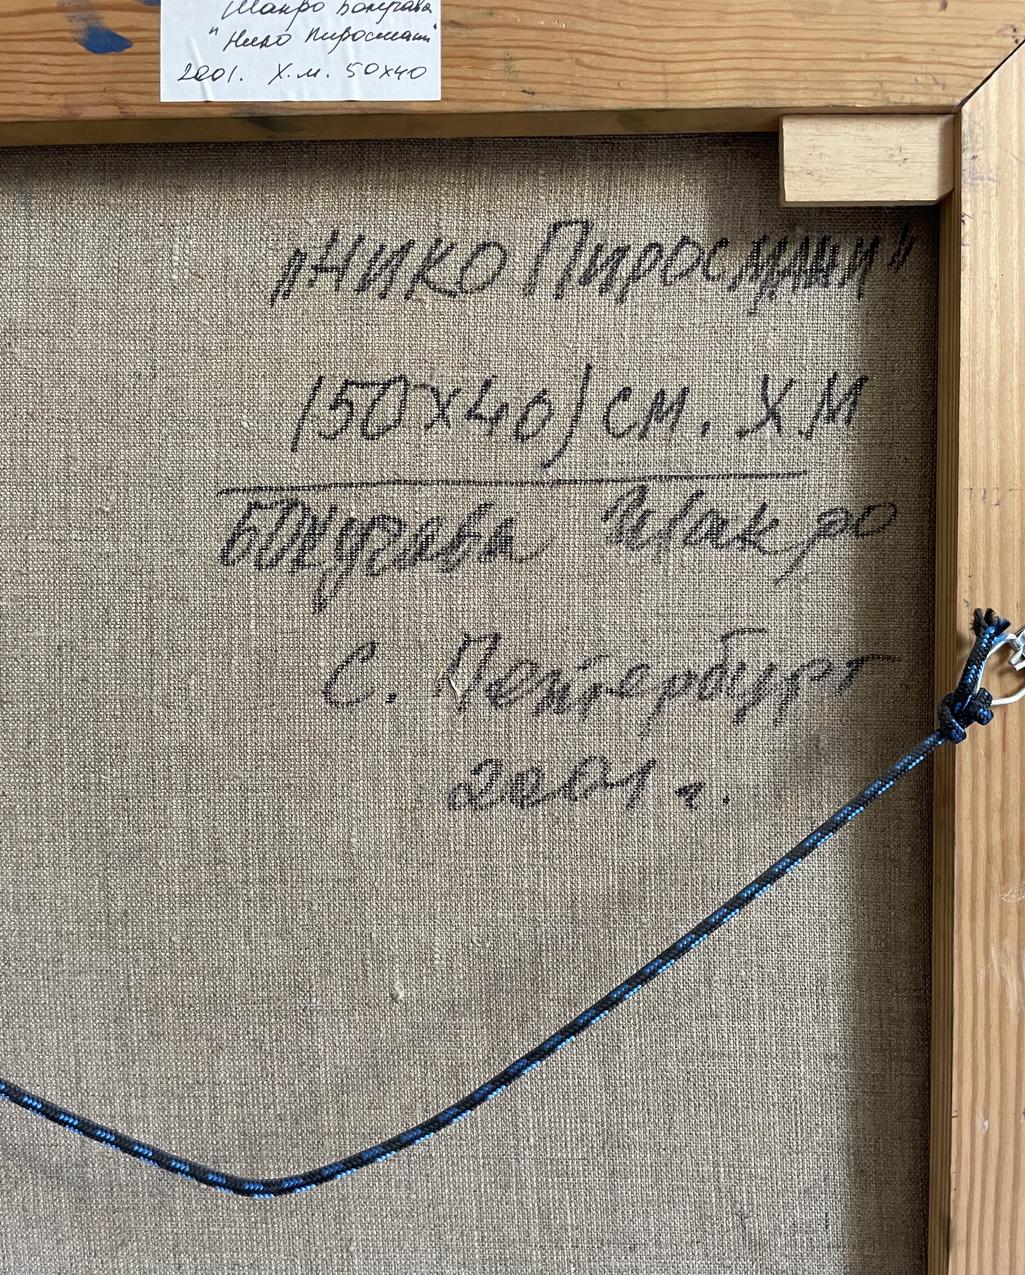 Шакро Бокучава
"Нико Пиросмани"
2001. Х.м. 50х40
„Нико Пиросмани"
(50х40) см. Х.М
Бокучава Шакро
С. Петербург
2001 г.